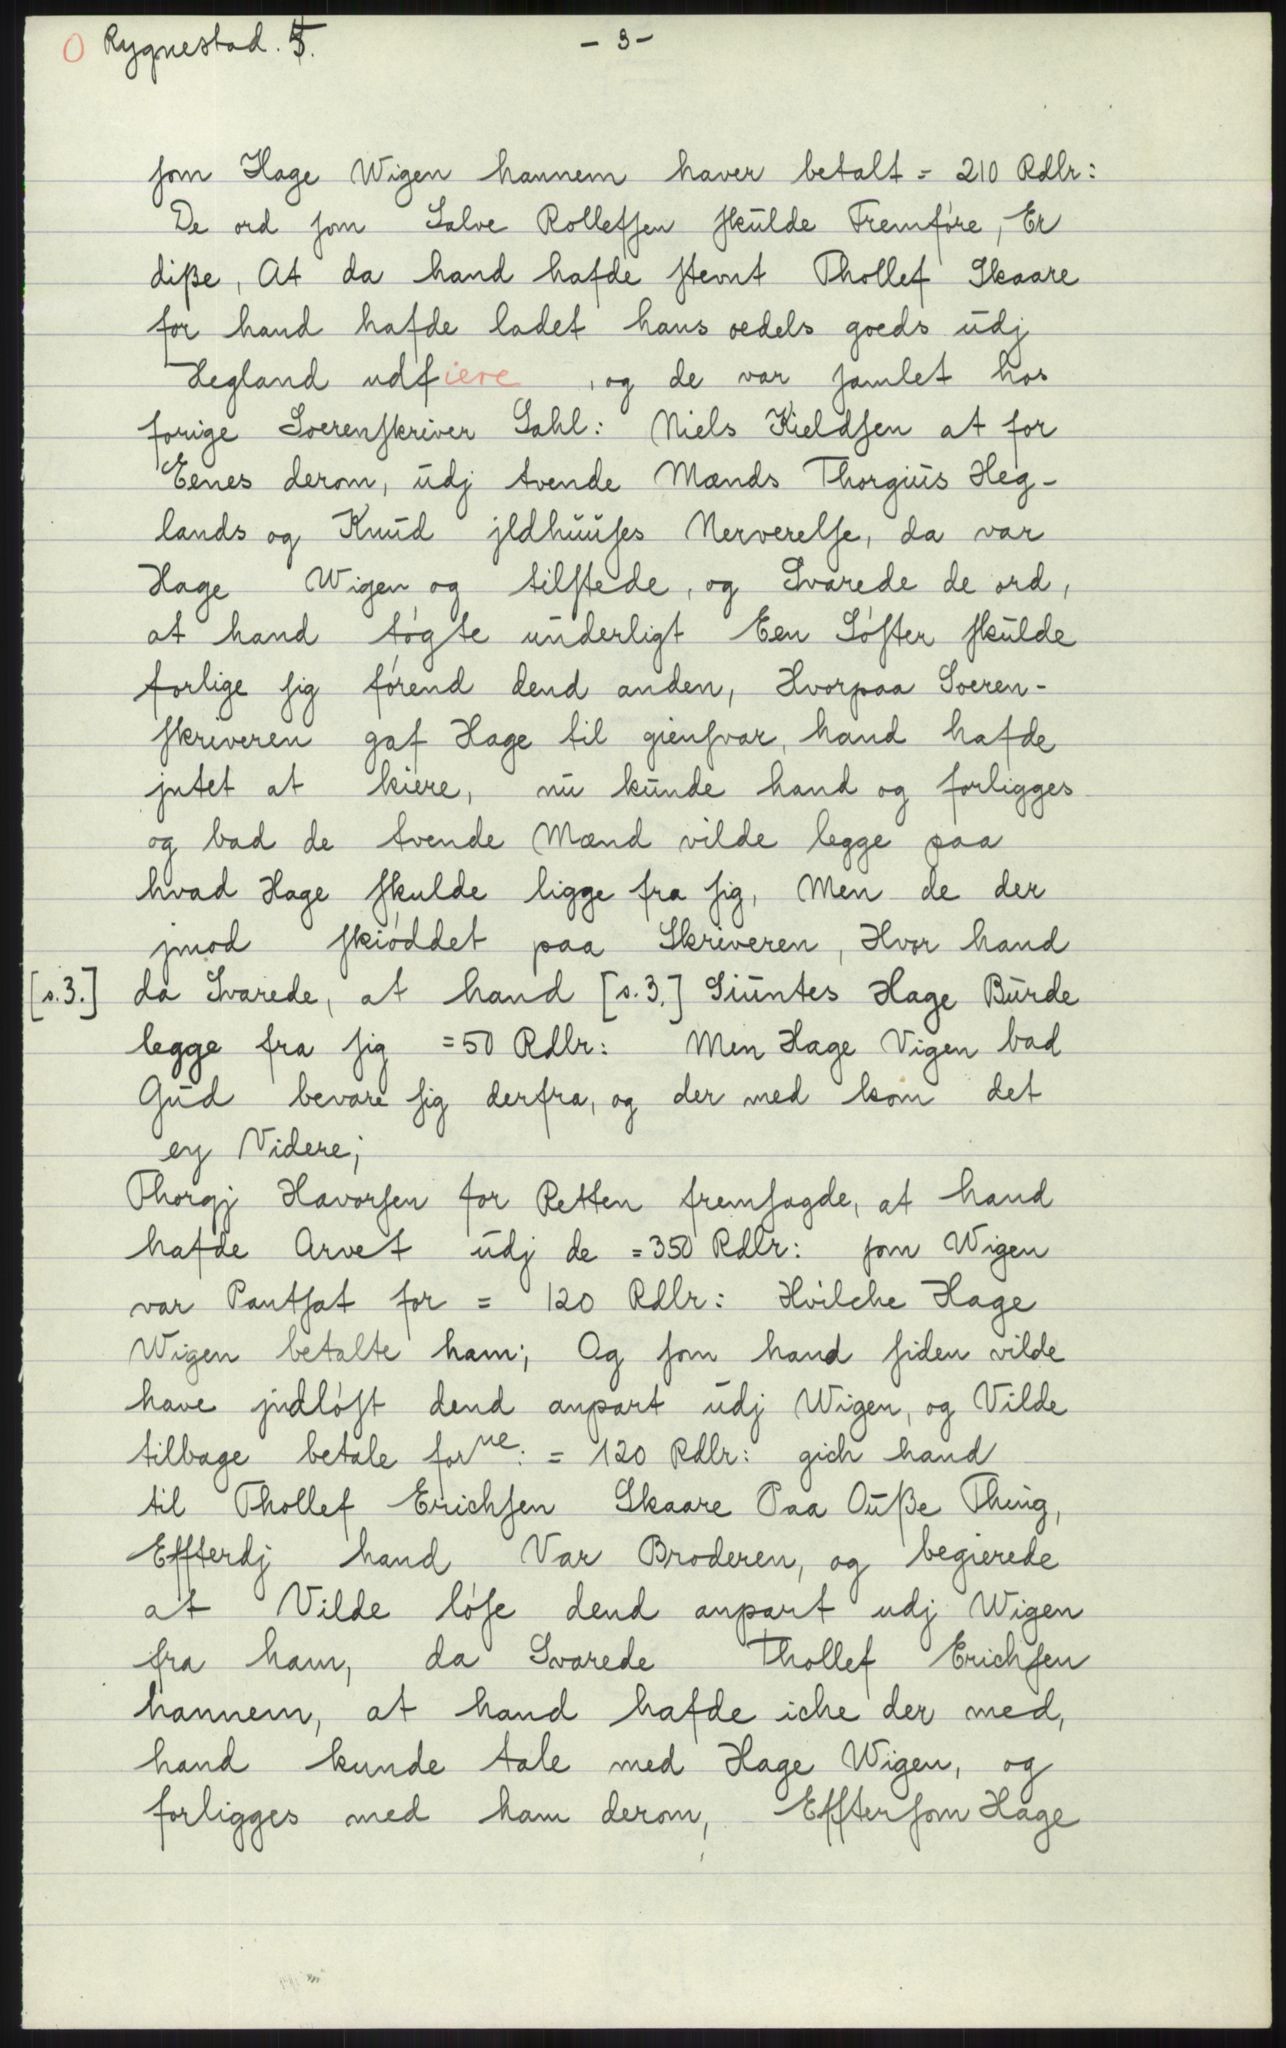 O Rygnestad. 5. - 3 -
som Hage Wigen hannem haver betalt = 210 Rdlr:
De ord som Salve Rollefsen skulde Fremføre, Er
diße, At da hand hafde stevnt Thollef Skaare
for hand hafde ladet hans oedels goeds udj
Hegland udfiere , og de var samlet hos
forige Soerenskriver Sahl: Niels Kieldsen at for
Eenes derom, udj tvende Mænds Thorgius Heg-
lands og Knud jldhuuses Nerverelse, da var
Hage Wigen og tilstede, og Svarede de ord,
at hand tøgte underligt Een Søster skulde
forlige sig førend dend anden, Hvorpaa Soeren-
skriveren gaf Hage til giensvar, hand hafde
jntet at kiere, nu kunde hand og forligges
og bad de tvende Mænd vilde legge paa
hvad Hage skulde ligge fra sig, Men de der
jmod skiøddet paa Skriveren, Hvor hand
[s.3.] da Svarede, at hand [s.3.] Siuntes Hage Burde
legge fra sig =50 Rdlr: Men Hage Vigen bad
Gud bevare sig derfra, og der med kom det
ey Videre;
Thorgj Havorsen for Retten fremsagde, at hand
hafde Arvet udj de =350 Rdlr: som Wigen
var Pantsat for = 120 Rdlr: Hvilche Hage
Wigen betalte ham; Og som hand siden vilde
have jndløst dend anpart udj Wigen, og Vilde
tilbage betale forne: = 120 Rdlr: gich hand
til Thollef Erichsen Skaare Paa Ouße Thing,
Effterdj hand Var Broderen, og begierede
at Vilde løse dend anpart udj Wigen
fra ham, da Svarede Thollef Erichsen
hannem, at hand hafde iche der med,
hand kunde tale med Hage Wigen, og
forligges med ham derom, Efftersom Hage